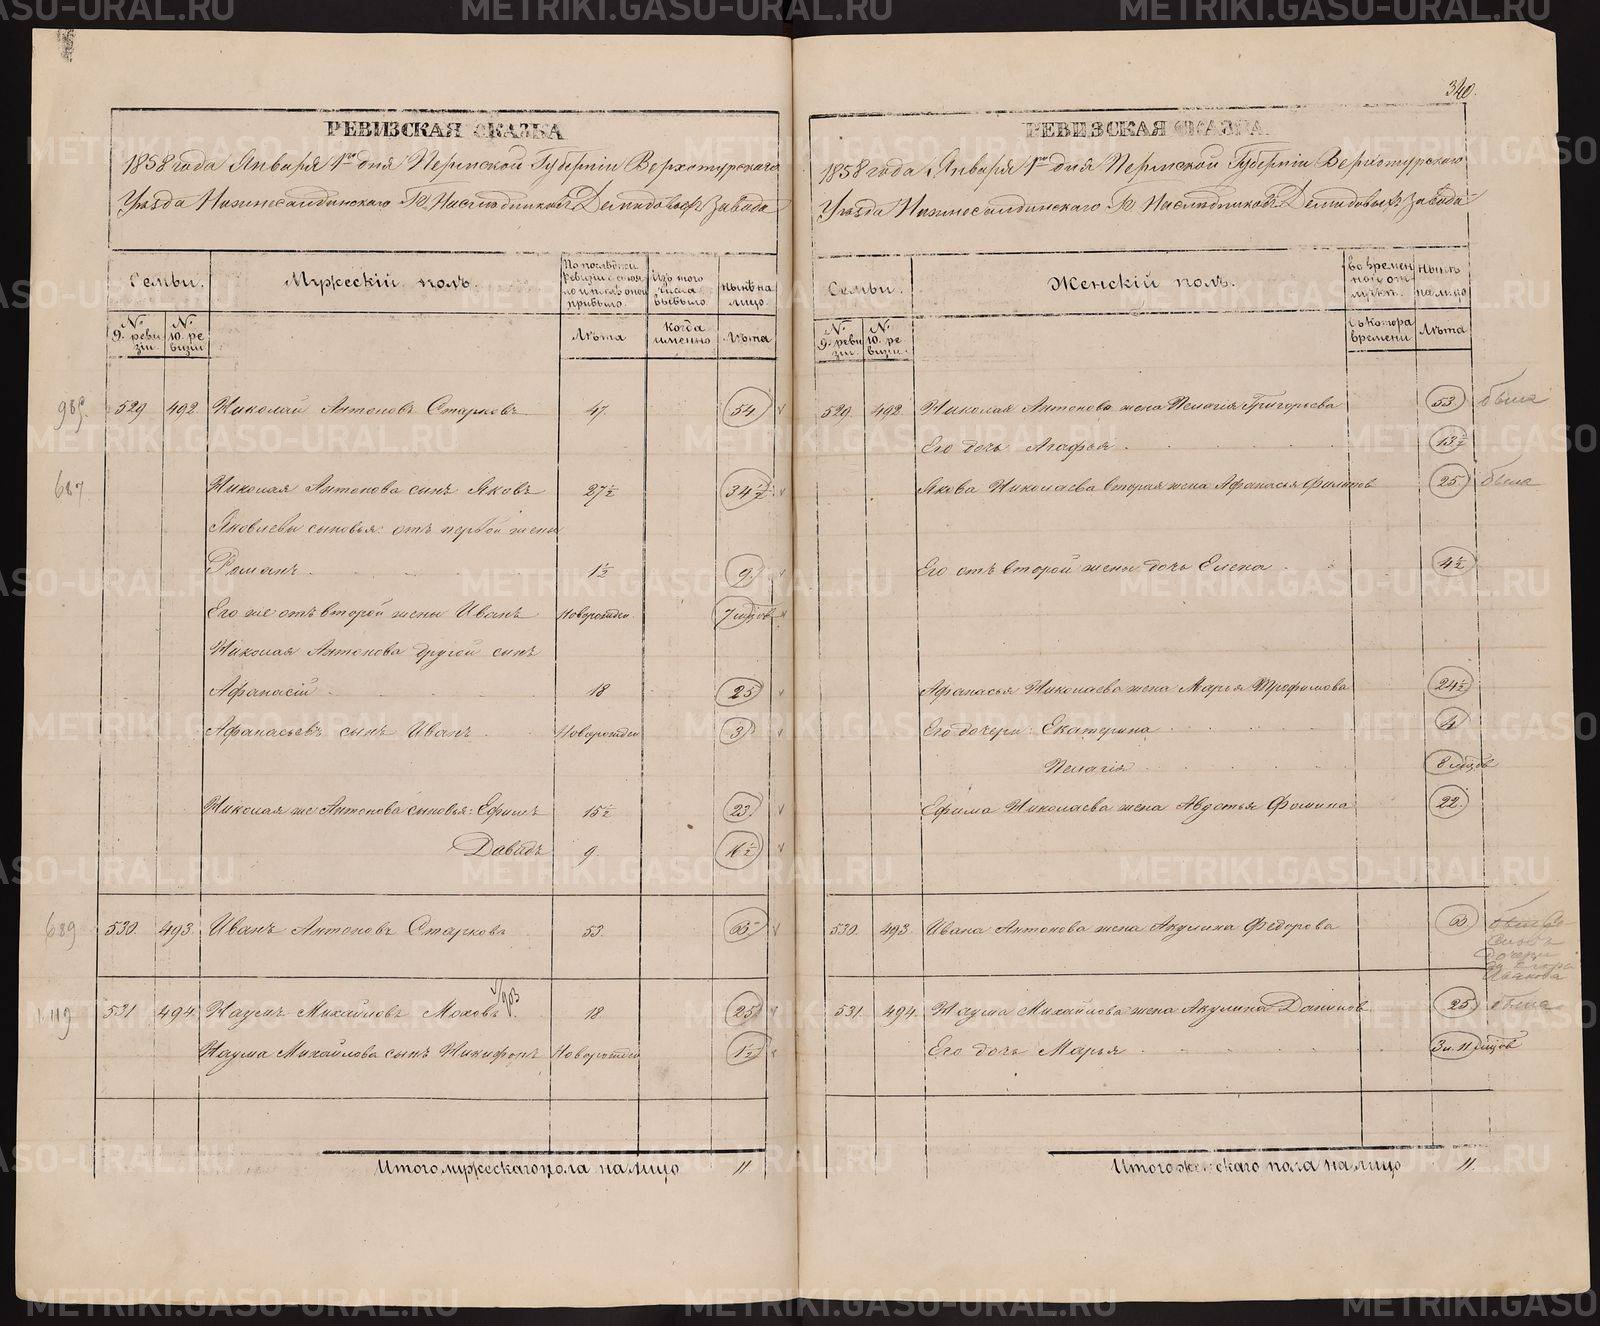 340.
РЕВИЗСКАЯ СКАЗКА
1858 года Января 1го дня Пермской Губерніи Верхотурскаго
Уѣзда Нижнесалдинскаго Гг. Наслѣдниковъ Демидовыхъ завода
Семьи.
Мужескій полъ.
По послѣдней ревизіи состояло и послѣ оной прибыло.
Изъ того числа выбыло
Нынѣ на лицо.
№ 9. ревизіи.
№ 10. ревизіи
Лѣта
когда именно
Лѣта
529 492 Николай Антоновъ Старковъ 47. 54
687 Николая Антонова сынъ Яковъ 27½ 34½
Яковлевы сыновья: отъ первой жены
Романъ 1½ 9.
Его же отъ второй жены Иванъ Новорожден. 7 мцовъ
Николая Антонова другой сынъ
Афанасій 18 25
Афанасьевъ сынъ Иванъ Новорожден 3
Николая же Антонова сыновья: Ефимъ 15½ 23
Давидъ 9. 16½
689 530. 493. Иванъ Антоновъ Старковъ 53.
531 494. Наумъ Михайловъ Моховъ. 18 25
Наума Михайлова сынъ Никифоръ Новорожден 1½
Итого мужескаго пола на лицо 11
РЕВИЗСКАЯ СКАЗКА
1858 года Января 1го дня Пермской Губерніи Верхотурскаго
Уѣзда Нижнесалдинскаго Гг. Наслѣдниковъ Демидовыхъ завода
Семьи.
Женскій полъ.
во временной отлучкѣ.
Нынѣ на лицо
№ 9. ревизіи.
№ 10. ревизіи.
съ котора времени
Лѣта
529. 492. Николая Антонова жена Пелагія Григорьева 53
Его дочь Агафья 13½
Якова Николаева вторая жена Афанасья Филатов 25
Его отъ второй жены дочь Елена 4½
Афанасья Николаева жена Марья Трофимова 24½
Его дочери: Екатерина 4
Пелагія 8 мцовъ
Ефима Николаева жена Авдотья Фомина 22.
530. 493. Ивана Антонова жена Акулина Федорова
531. 494. Наума Михайлова жена Акулина Данилов. 25
Его дочь Марья 3 и 11 мцов
Итого женскаго пола на лицо 11.
METRIKI.GASO-URAL.RU